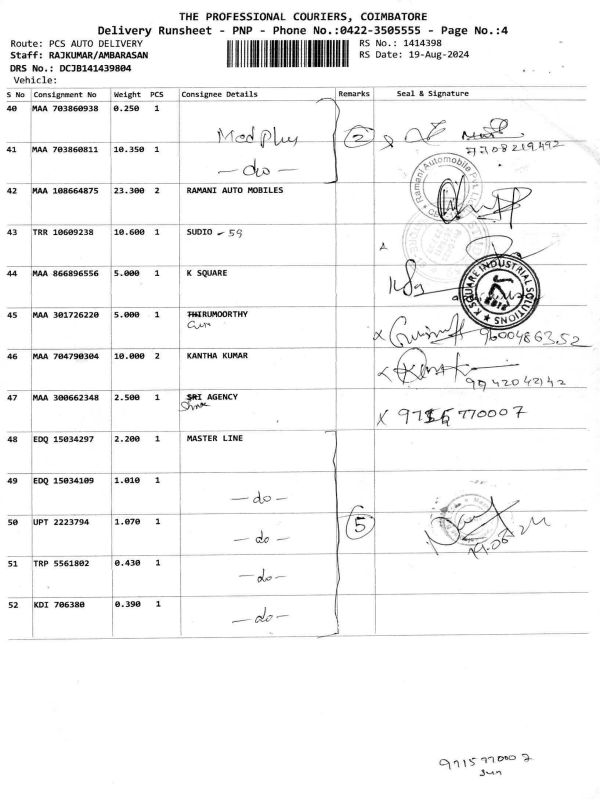 THE PROFESSIONAL COURIERS, COIMBATORE
Delivery Runsheet - PNP - Phone No.:0422-3505555 - Page No.:4
Route: PCS AUTO DELIVERY RS No.: 1414398
Staff: RAJKUMAR/AMBARASAN RS Date: 19-Aug-2024
DRS No.: DCJB141439804
Vehicle:
S No Consignment No Weight PCS Consignee Details Remarks Seal & Signature
40 MAA 703860938 0.250 1
Medplus 2
7708219492
41 MAA 703860811 10.350 1 -do-
Ramani Automobile Pvt. Ltd
42 MAA 108664875 23.300 2 RAMANI AUTO MOBILES
43 TRR 10609238 10.600 1 SUDIO - 59
44 MAA 866896556 5.000 1 K SQUARE
K SQUARE INDUSTRIAL SOLUTIONS
45 MAA 301726220 5.000 1 THIRUMOORTHY
x 9600486352
46 MAA 704790304 10.000 2 KANTHA KUMAR
x 9942042142
47 MAA 300662348 2.500 1 SRI AGENCY
x 9715770007
48 EDQ 15034297 2.200 1 MASTER LINE
49 EDQ 15034109 1.010 1 -do-
50 UPT 2223794 1.070 1 -do- 5
19.08.24
51 TRP 5561802 0.430 1 -do-
52 KDI 706380 0.390 1 -do-
9715770007